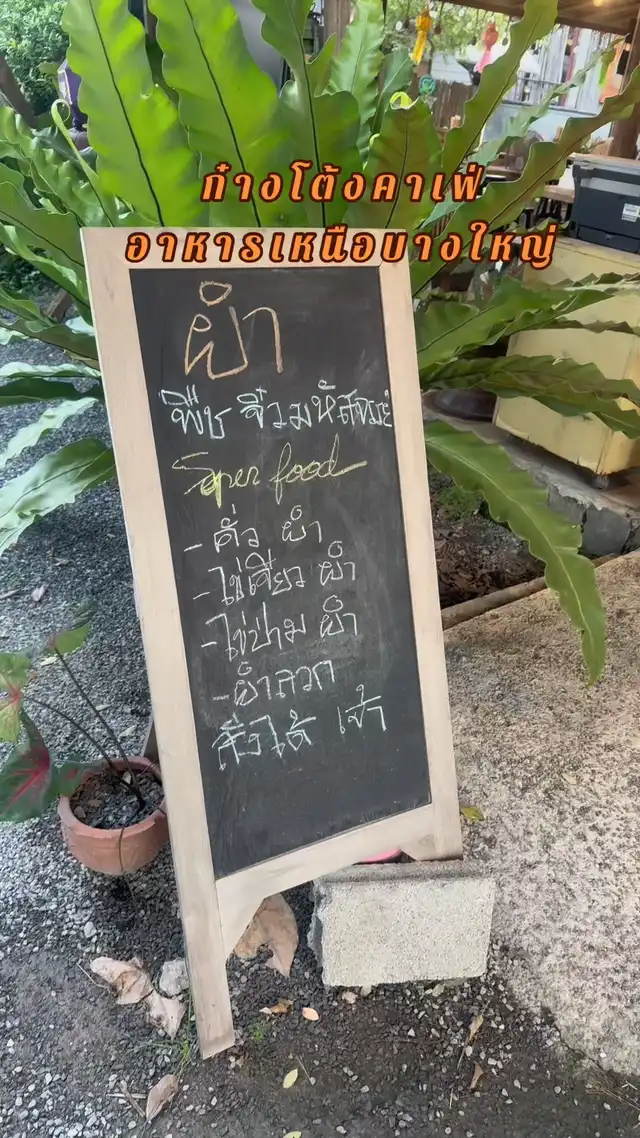 ก๋างโต้งคาเฟ่
อาหารเหนือบางใหญ่
ผำ
พืช จิ๋วมหัสจรรย์
Super food
- คั่ว ผำ
- ไข่เจียว ผำ
- ไข่ป่าม ผำ
- ผำลวก
สั่งได้ เจ้า